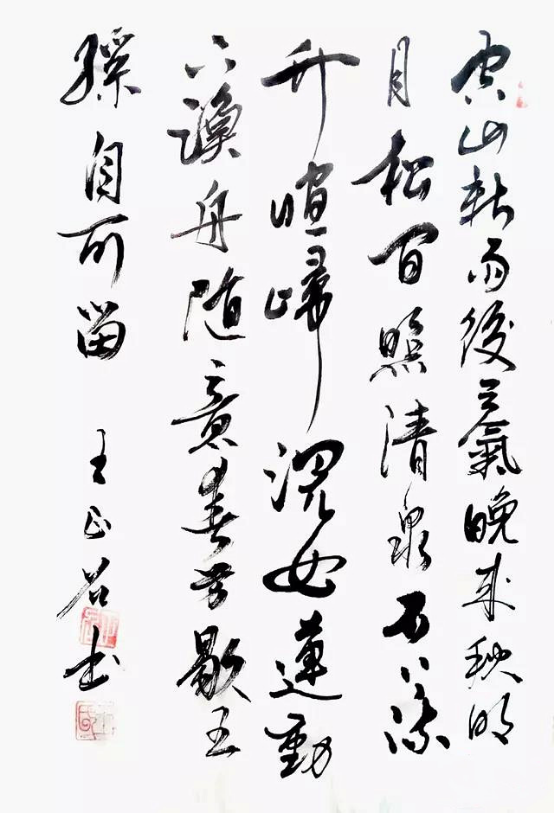 空山新雨後天氣晚来秋明
月松間照清泉石上流
竹喧歸浣女蓮動
下漁舟随意春芳歇王
孫自可留 王正书